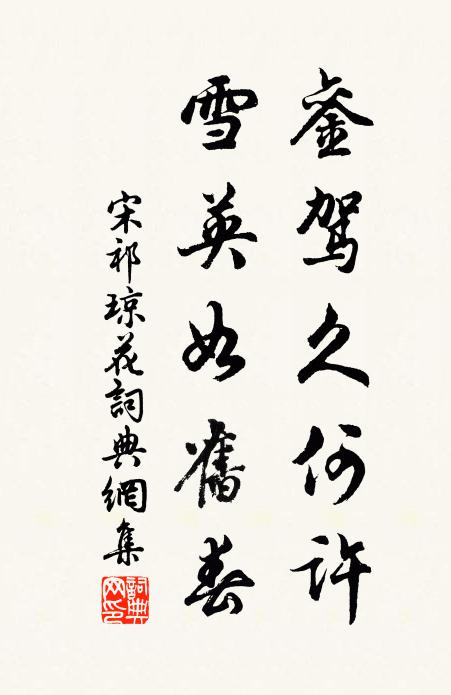 銮驾久何许
雪英如舊春
宋祁琼花詞典網集
詞典网印